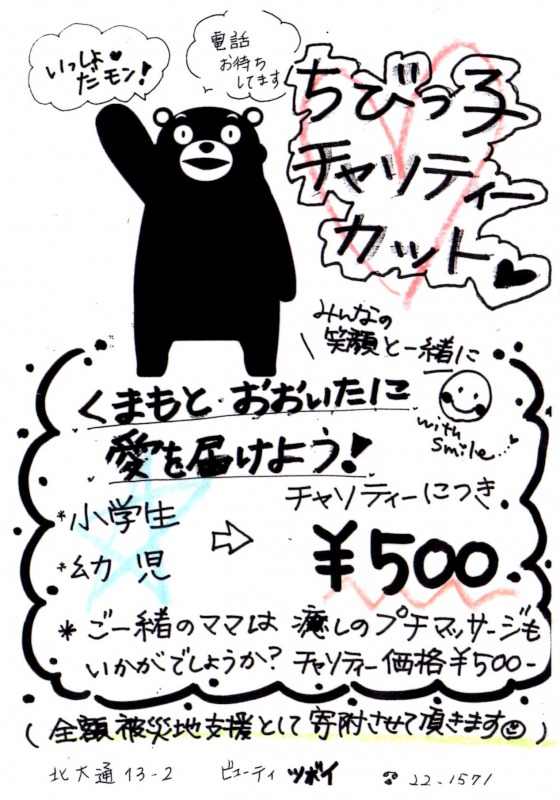 いっしょ♥
だモン!
電話
お待ち
してます
ちびっ子
チャリティー
カット♥
みんなの
笑顔と一緒に
くまもと おおいたに
愛を届けよう!
with
smile...♥
*小学生
*幼児
⇨
チャリティーにつき
¥500
*ご一緒のママは 癒しのプチマッサージも
いかがでしょうか? チャリティー価格¥500-
(全額被災地支援として寄附させて頂きます☺)
北大通13-2 ビューティ ツボイ ☎22-1571